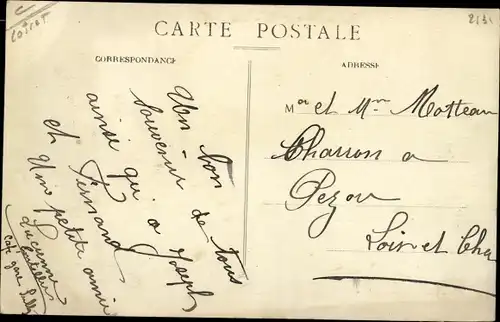 Loiret
CARTE POSTALE
CORRESPONDANCE
ADRESSE
Un bon
souvenir de tous
ainsi qu'a Joseph
et Fernand
Une petite amie
Lucienne
Café gare
Mr et Mme Motteau
Charron a
Pezou
Loir et Cher